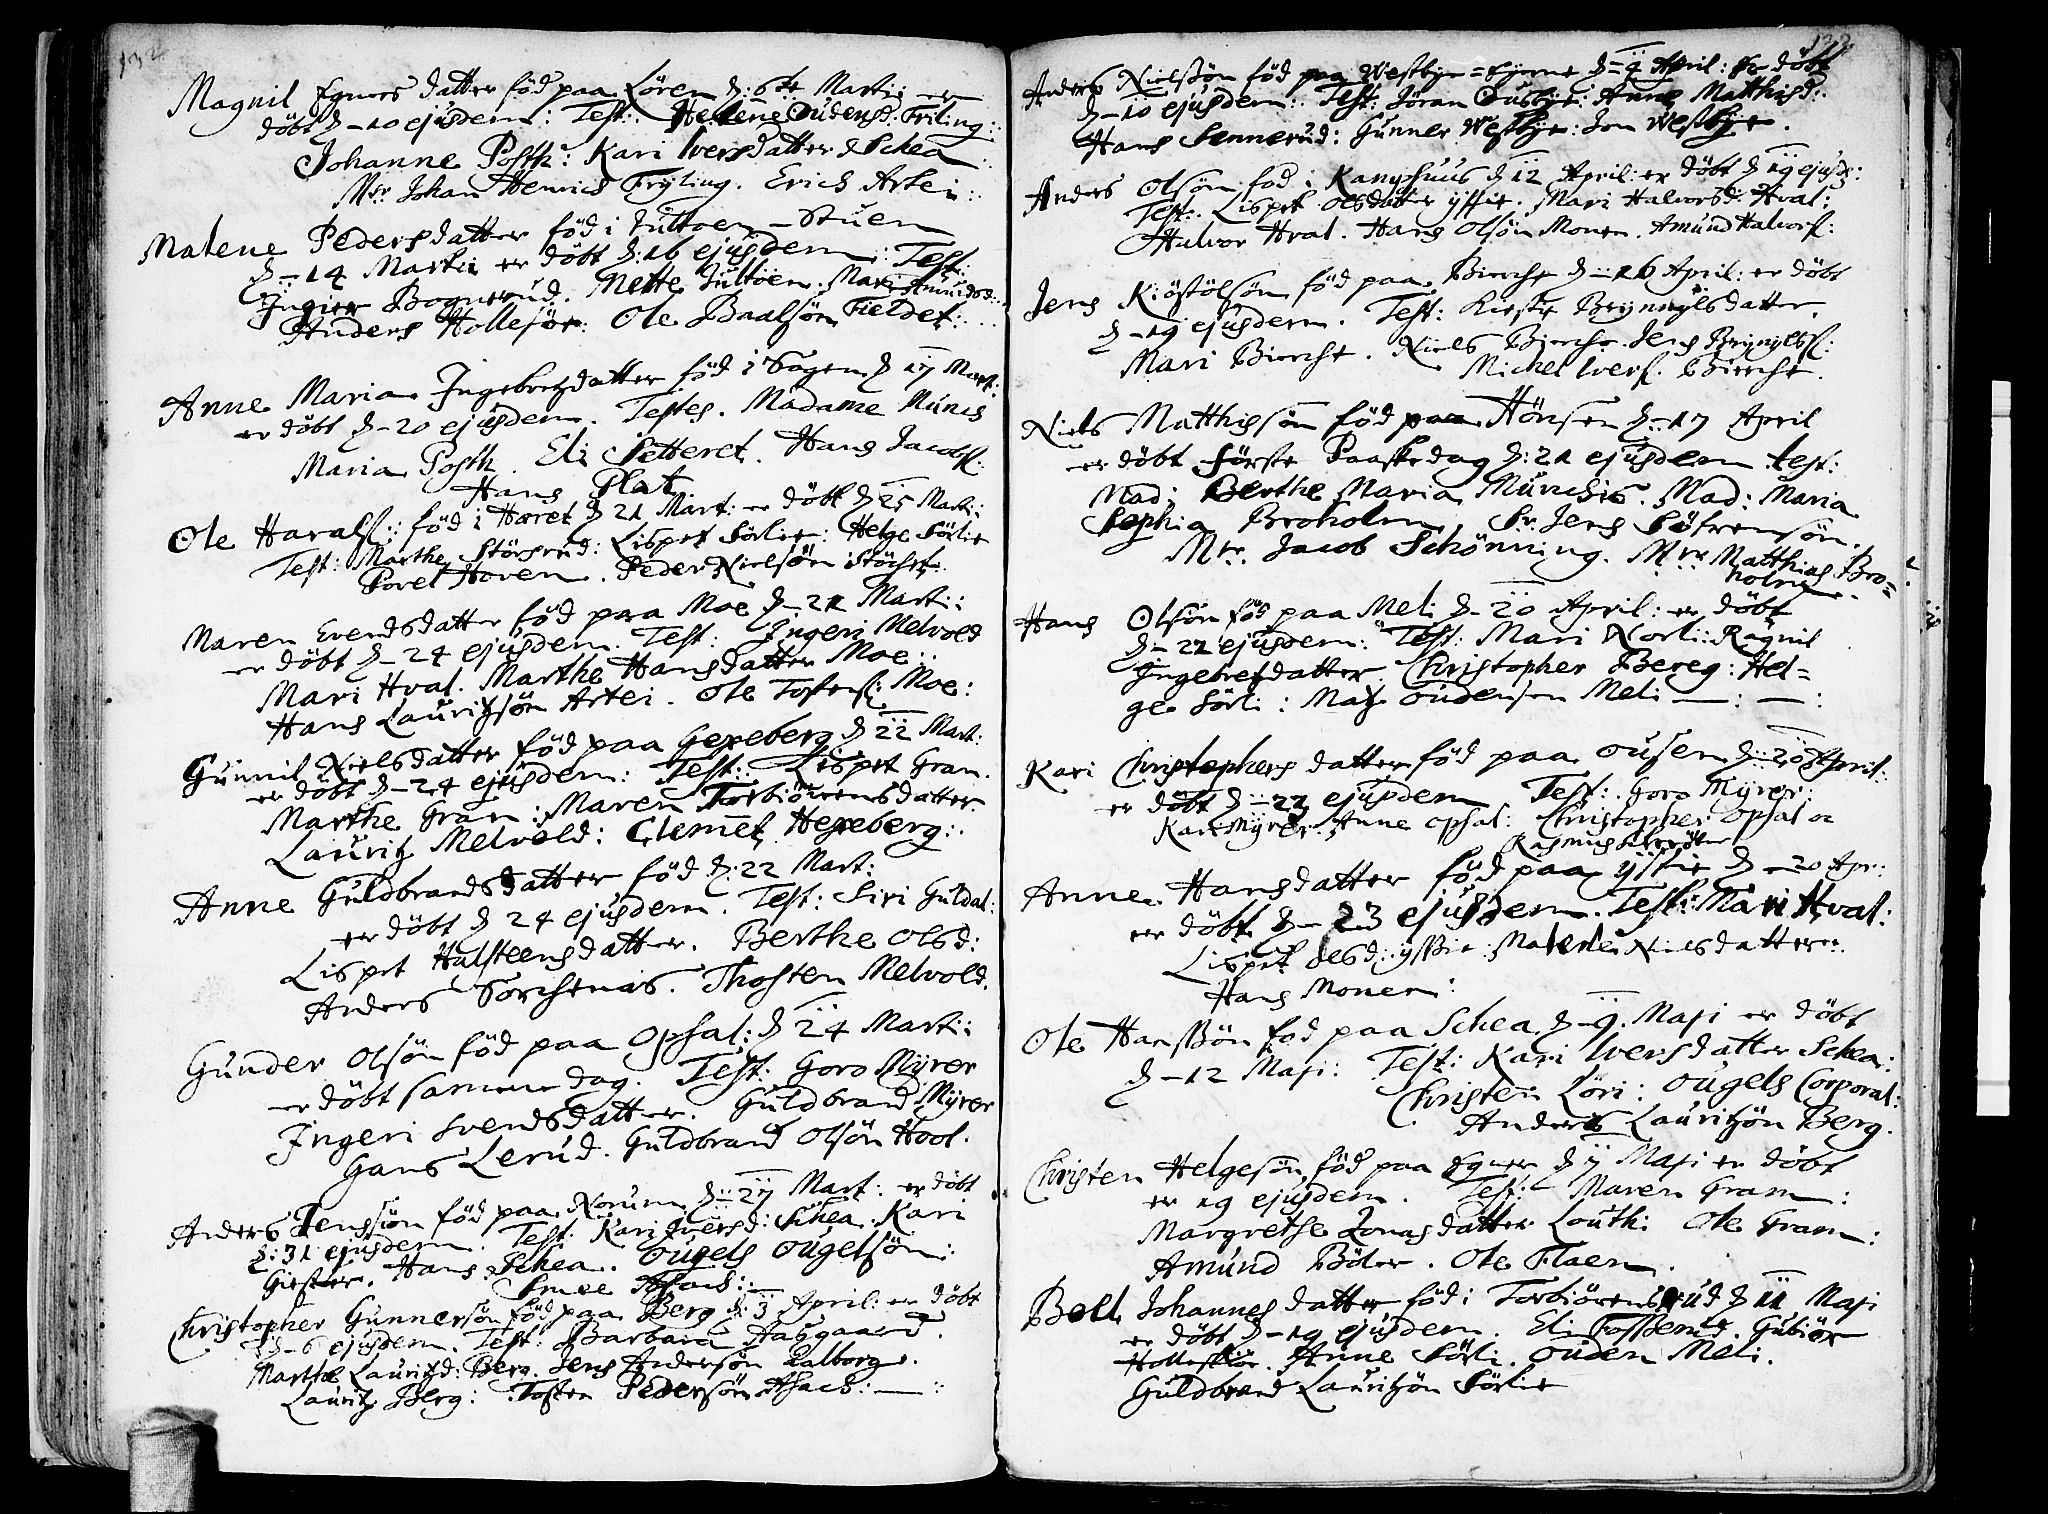 132
Magnil Egners datter föd paa Lören d: 6te Martii er
döbt d-10 ejusdem: Test: Helene Oudensd. Friling:
Johanne Posth: Kari Ivers datter Schea
Mr. Johan Henrich Fryling. Erich Artei
Malene Peders datter föd i Jultoen-Stuen
d-14 Martii er döbt d: 16 ejusdem: Test:
Ingier Bognerud. Mette Jultoen. Mari Amundsd:
Anders Hollesiör: Ole Baalsön Fieldet:
Anne Maria Ingebretzdatter föd i Sagen d 17 Mart:
er döbt d-20 ejusdem. Testes. Madame Münch
Maria Posth. Eli Setteret. Hans Jacobs:
Hans Plat
Ole Harals: föd i Horet d 21 Mart: er döbt d 25 Marti:
Test: Marthe Störsrud: Lispet Sörlie: Helge Sörlie
Porel Hoven. Peder Nielsön Störset:
Maren Evendsdatter föd paa Moe d-21 Marti:
er döbt d-24 ejusdem. Test: Ingeri Melvold
Mari Hval. Marthe Hansdatter Moe:
Hans Lauritzsön Artei. Ole Tostens: Moe:
Gunnil Nielsdatter föd paa Gexeberg d 22 Mart:
er döbt d-24 ejusdem: Test: Lispet Gran.
Marthe Gran: Maren Torbiörensdatter
Lauritz Melvold: Clemet Hexeberg:
Anne Guldbrandsdatter föd d: 22 Mart:
er döbt d 24 ejusdem. Test: Siri Guldal:
Lispet Halsteensdatter. Berthe Olsd:
Anders Sorchenäs. Thosten Melvold.
Gunder Olsön föd paa Opsal: d 24 Marti:
er döbt samme dag. Test: Goro Myrer
Ingeri Svendsdatter. Guldbrand Myrer
Hans Lerud. Guldbrand Olsön Hool.
Anders Jenssön föd paa Norum d-27 Mart: er döbt
d: 31 ejusdem. Test: Kari Iversd: Schea. Kari
Giestær. Hans Schea. Ougels Ougelsön:
Christopher Gunnersön föd paa Berg d: 3 April: er döbt
d-6 ejusdem. Test: Barbara Haggaard.
Marthe Lauritzd: Berg. Jens Andersön Dalborg.
Lauritz Berg: Tosten Pedersön Asach:
Anders Nielssön föd paa Westbye=Eyerne d-4 April: er döbt
d-10 ejusdem: Test: Jöran Dusbye: Anne Matthisd:
Hans Sennerud: Gunner Westbye: Jon Westbye.
Anders Olsön föd i Kanphuus d 12 April: er döbt d 19 ejusd:
Test: Lispet Olsdatter ysstie. Mari Halvorsd: Hval:
Halvor Hval. Hans Olsön Monen. Amund Halvors:
Jens Kiöstölsön föd paa Bierche d-16 April: er döbt
d-19 ejusdem. Test: Kirsti Brynnylsdatter.
Mari Bierche. Niels Bierche. Jens Brynyls:
Michel Ivers. Bierche.
Niels Matthissön föd paa Hönsen d-17 April
er döbt förste Paaskedag d: 21 ejusdem test:
Mad: Berthe Maria Münchs. Mad: Maria
Sophia Broholm. Sr. Jens Söfrensön.
Mr. Jacob Schönning. Mr. Matthias Bro=
holm.
Hans Olsön föd paa Meli d-20 April: er döbt
d-22 ejusdem: Test: Mari Norli: Ragnil
Ingebretdatter. Christopher Bereg: Hel=
ge Sörli: Matz Oudensen Meli
Kari Christophers datter föd paa Ousen d: 20 April:
er döbt d-22 ejusdem Test: Goro Myrer:
Kari Myrer: Anne Opsal: Christopher Opsal
Anne Hansdatter föd paa ystie d-20 Apr:
er döbt d-23 ejusdem. Test: Mari Hval:
Lispet Olsd: ystie: Malene Nielsdatter
Hans Monen:
Ole Hanssön föd paa Schea d-9. Maji er döbt
d-12 Maji: Test: Kari Ivers datter Schea:
Christen Löri: Ougels Corporal:
Anders Lauritzön Berg.
Christen Helgesön föd paa Egner d 7 Maji er döbt
er 19 ejusdem. Test: Maren Gram:
Margrethe Jonasdatter Louth: Ole Gram:
Amund Böler. Ole Flaen.
Boel Johannes datter föd i Torbiörensrud d 11 Maji
er döbt d-19 ejusdem. Eli Fosserud. Gubiör
Hollesiör. Anne Sörli. Ouden Meli.
Guldbrand Lauritzön Sörlie